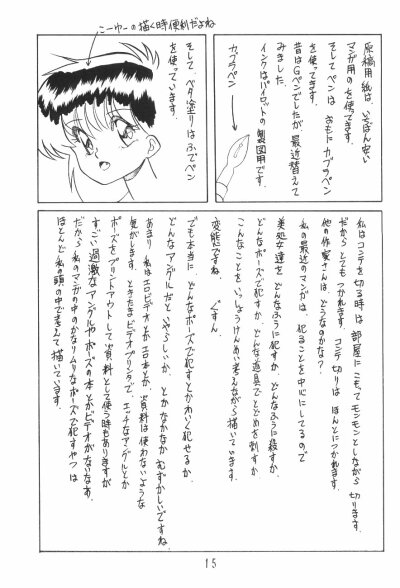 こーゆーの描く時便利だよね
原稿用紙は、いちばん安い
マンガ用のを使ってます。
そしてペンは おもにカブラペン
を使ってます。
昔はGペンでしたが、最近替えて
みました。
インクはパイロットの製図用です。
カブラペン
そして ベタ塗りはふでペン
を使っています。
私はコンテを切る時は 部屋にこもってモンモンとしながら 切ります。
だからとてもつかれます。コンテ切りは ほんとにつかれます。
他の作家さんは、どうなのかな?
私の最近のマンガは、犯ることを中心にしてるので
美処女達を どんなふうに犯すか どんなふうに殺すか
どんなポーズで犯すか どんな道具でとどめを刺すか
こんなことをいっしょうけんめい考えながら描いています。
変態ですね。 ぐすん
でも本当に どんなポーズで犯すとかわいく犯せるか、
どんなアングルだといやらしいか、とかなかなか むずかしいですね。
あまり 私はエロビデオとかエロ本とか、資料は使わないような
気がします。ときたまビデオプリンタで、エッチなアングルとか
ポーズをプリントアウトして資料として使う時もありますが
すごい過激なアングルやポーズの本とかビデオがないなあ。
だから 私のマンガの中のかなりムリなポーズで犯すやつは
ほとんど私の頭の中で考えて描いています。
15